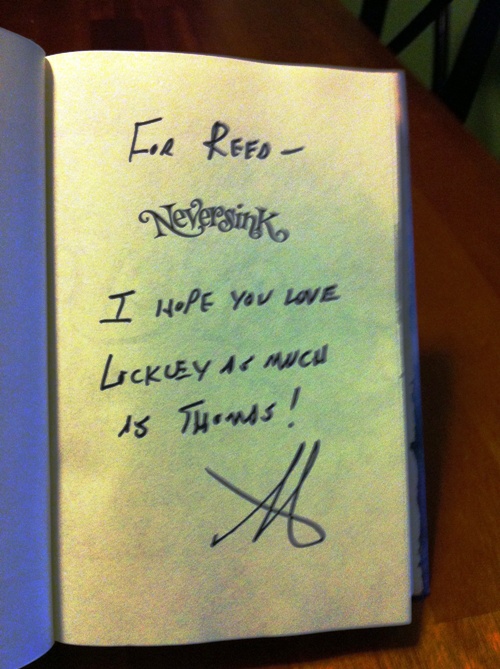 FOR REED—
NEVERSINK
I HOPE YOU LOVE
LOCKLEY AS MUCH
AS THOMAS!